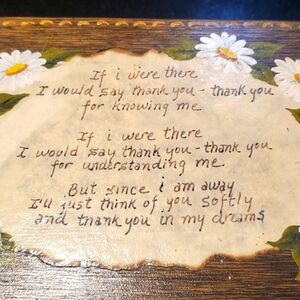 If i were there
I would say thank you - thank you
for knowing me
If i were there
I would say thank you - thank you
for understanding me.
But since i am away
I'll just think of you softly
and thank you in my dreams